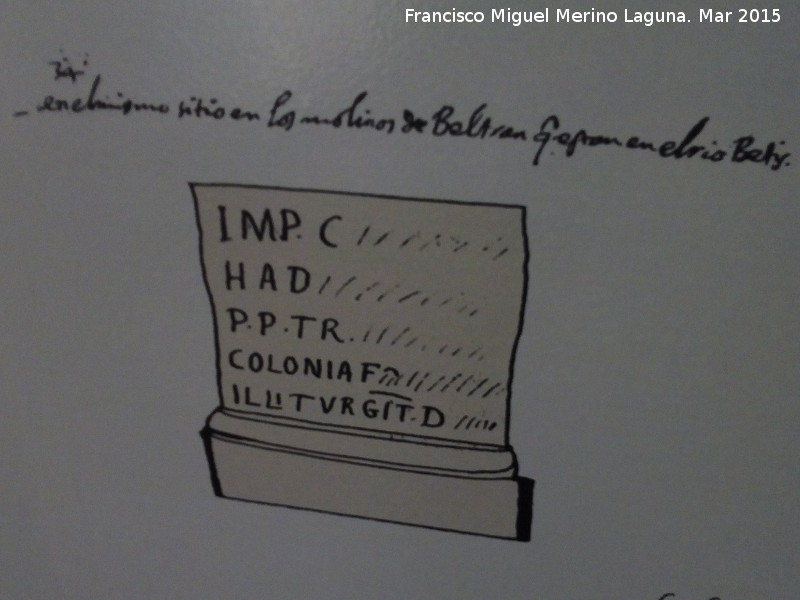 Francisco Miguel Merino Laguna. Mar 2015
en el mismo sitio en los molinos de Beltran q. estan en el rio Betis.
IMP. C
HAD
P.P.TR.
COLONIA F
ILLITVRGIT.D